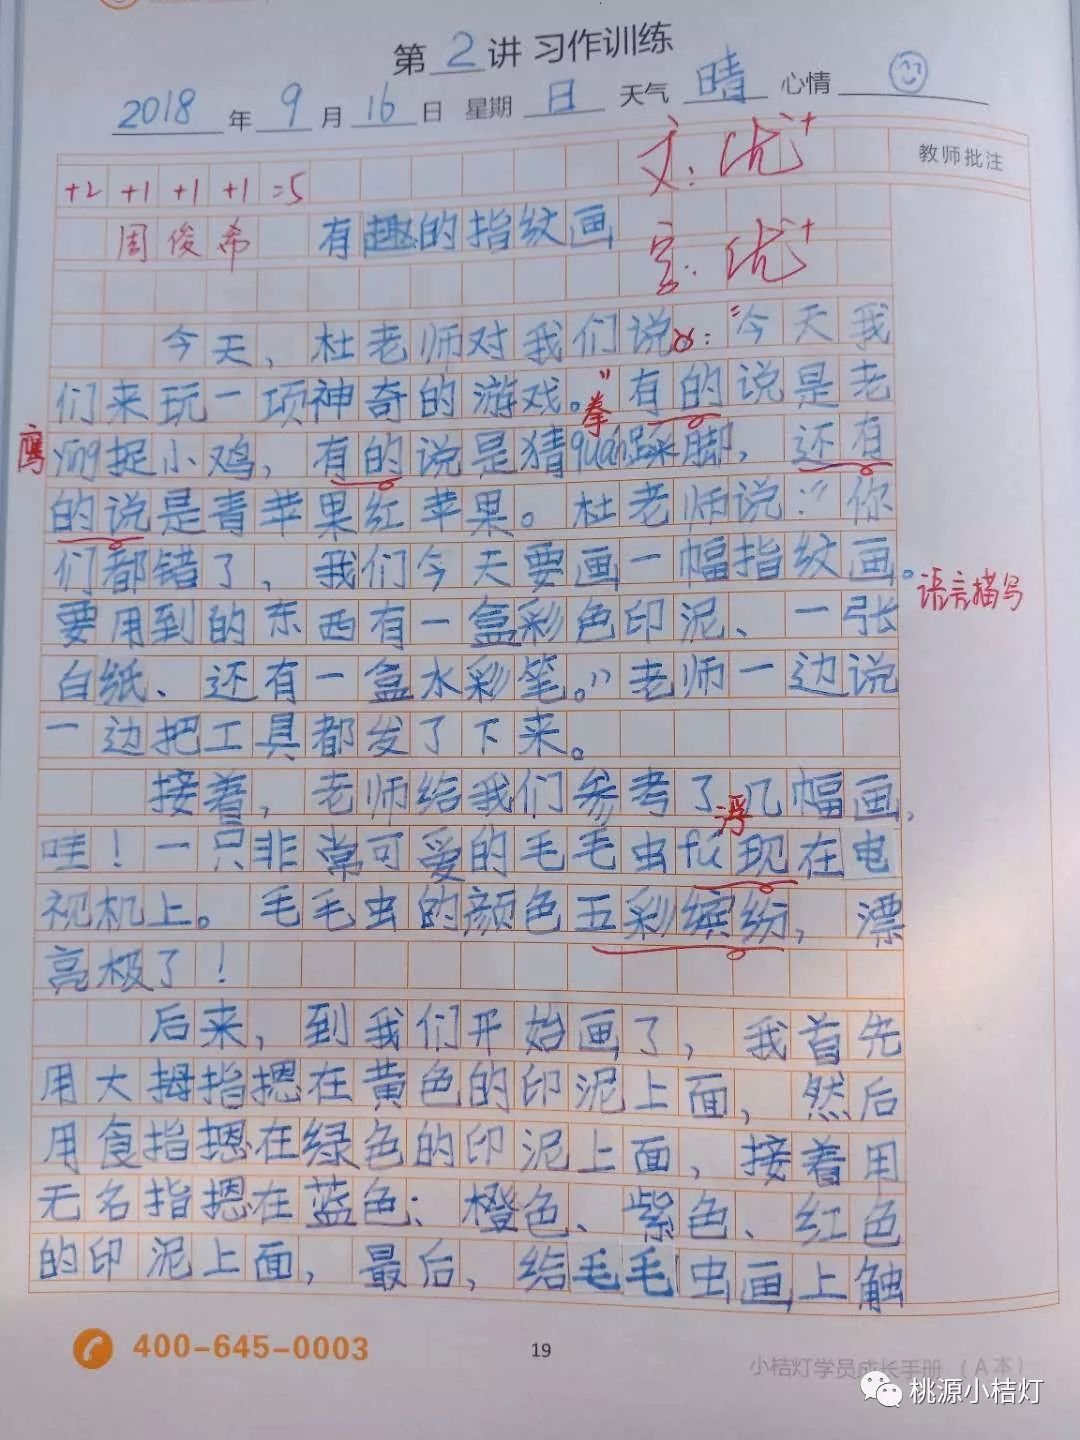 第2讲 习作训练
2018年9月16日 星期日 天气晴 心情
教师批注
文:优+
+2 +1 +1 +1 =5
周俊希 有趣的指纹画
字:优+
今天，杜老师对我们说：“今天我
们来玩一项神奇的游戏。”有的说是老
鹰
ying捉小鸡，有的说是猜quan踩脚，还有
拳
的说是青苹果红苹果。杜老师说：“你
们都错了，我们今天要画一幅指纹画。
语言描写
要用到的东西有一盒彩色印泥、一张
白纸、还有一盒水彩笔。”老师一边说
一边把工具都发了下来。
接着，老师给我们参考了几幅画，
浮
哇！一只非常可爱的毛毛虫fu现在电
视机上。毛毛虫的颜色五彩缤纷，漂
亮极了！
后来，到我们开始画了，我首先
用大拇指摁在黄色的印泥上面，然后
用食指摁在绿色的印泥上面，接着用
无名指摁在蓝色、橙色、紫色、红色
的印泥上面，最后，给毛毛虫画上触
400-645-0003
19
小桔灯学员成长手册（A本）
桃源小桔灯